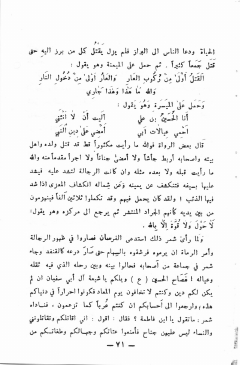 الحياة ودعا الناس الى البراز فلم يزل يقتل كل من برز اليه حتى
قتل جمعاً كثيراً . ثم حمل على الميمنة وهو يقول :
القتل أولى من ركوب العار والعار أولى من دخول النار
والله ما هذا وهذا جاري
وحمل على الميسرة وهو يقول :
أنا الحسين بن علي آليت أن لا انثني
أحمي عيالات أبي أمضي على دين النبي
قال بعض الرواة فوالله ما رأيت مكثوراً قط قد قتل ولده واهل
بيته واصحابه أربط جأشاً ولا أمضى جناناً ولا أجرأ مقدماً منه والله
ما رأيت قبله ولا بعده مثله وان كانت الرجالة لتشد عليه فيشد
عليها بسيفه فتنكشف عن يمينه وعن شماله انكشاف المعزى اذا شد
فيها الذئب ! ولقد كان يحمل فيهم وقد تكملوا ثلاثين ألفاً فينهزمون
من بين يديه كأنهم الجراد المنتشر ثم يرجع الى مركزه وهو يقول:
لا حول ولا قوة إلا بالله .
ولما رأى شمر ذلك استدعى الفرسان فصاروا في ظهور الرجالة
وأمر الرماة ان يرموه فرشقوه بالسهام حتى صار درعه كالقنفذ وجاء
شمر في جماعة من أصحابه فحالوا بينه وبين رحله الذي فيه ثقله
وعياله فصاح الحسين (ع) ويلكم يا شيعة آل أبي سفيان ان لم
يكن لكم دين وكنتم لا تخافون يوم المعاد فكونوا احراراً في دنياكم
هذه وارجعوا الى احسابكم ان كنتم عرباً كما تزعمون ، فناداه
شمر : ما تقول يا ابن فاطمة ؟ فقال : اقول : اني اقاتلكم وتقاتلونني
والنساء ليس عليهن جناح فامنعوا عتاتكم وجهالكم وطغاتكم من
— ٧١ —